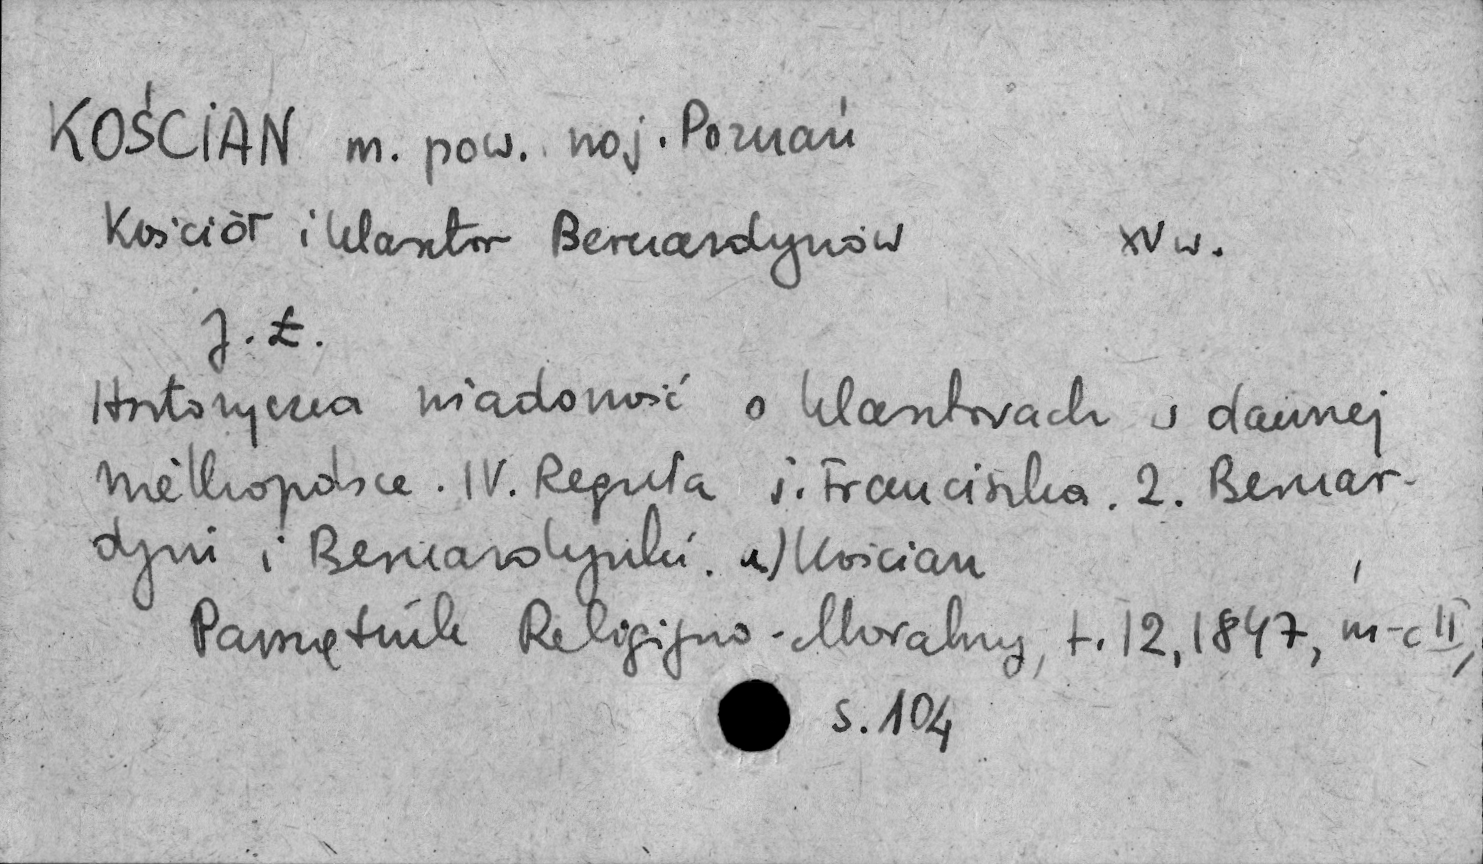 KOŚCIAN m. pow. woj. Poznań
Kościół i klasztor Bernardynów XV w.
J. Ł.
Historyczna wiadomość o klasztorach w dawnej
Wielkopolsce. IV. Reguła ś. Franciszka. 2. Bernar-
dyni i Bernardynki. a) Kościan
Pamiętnik Religijno-Moralny, t. 12, 1847, m-c II,
s. 104